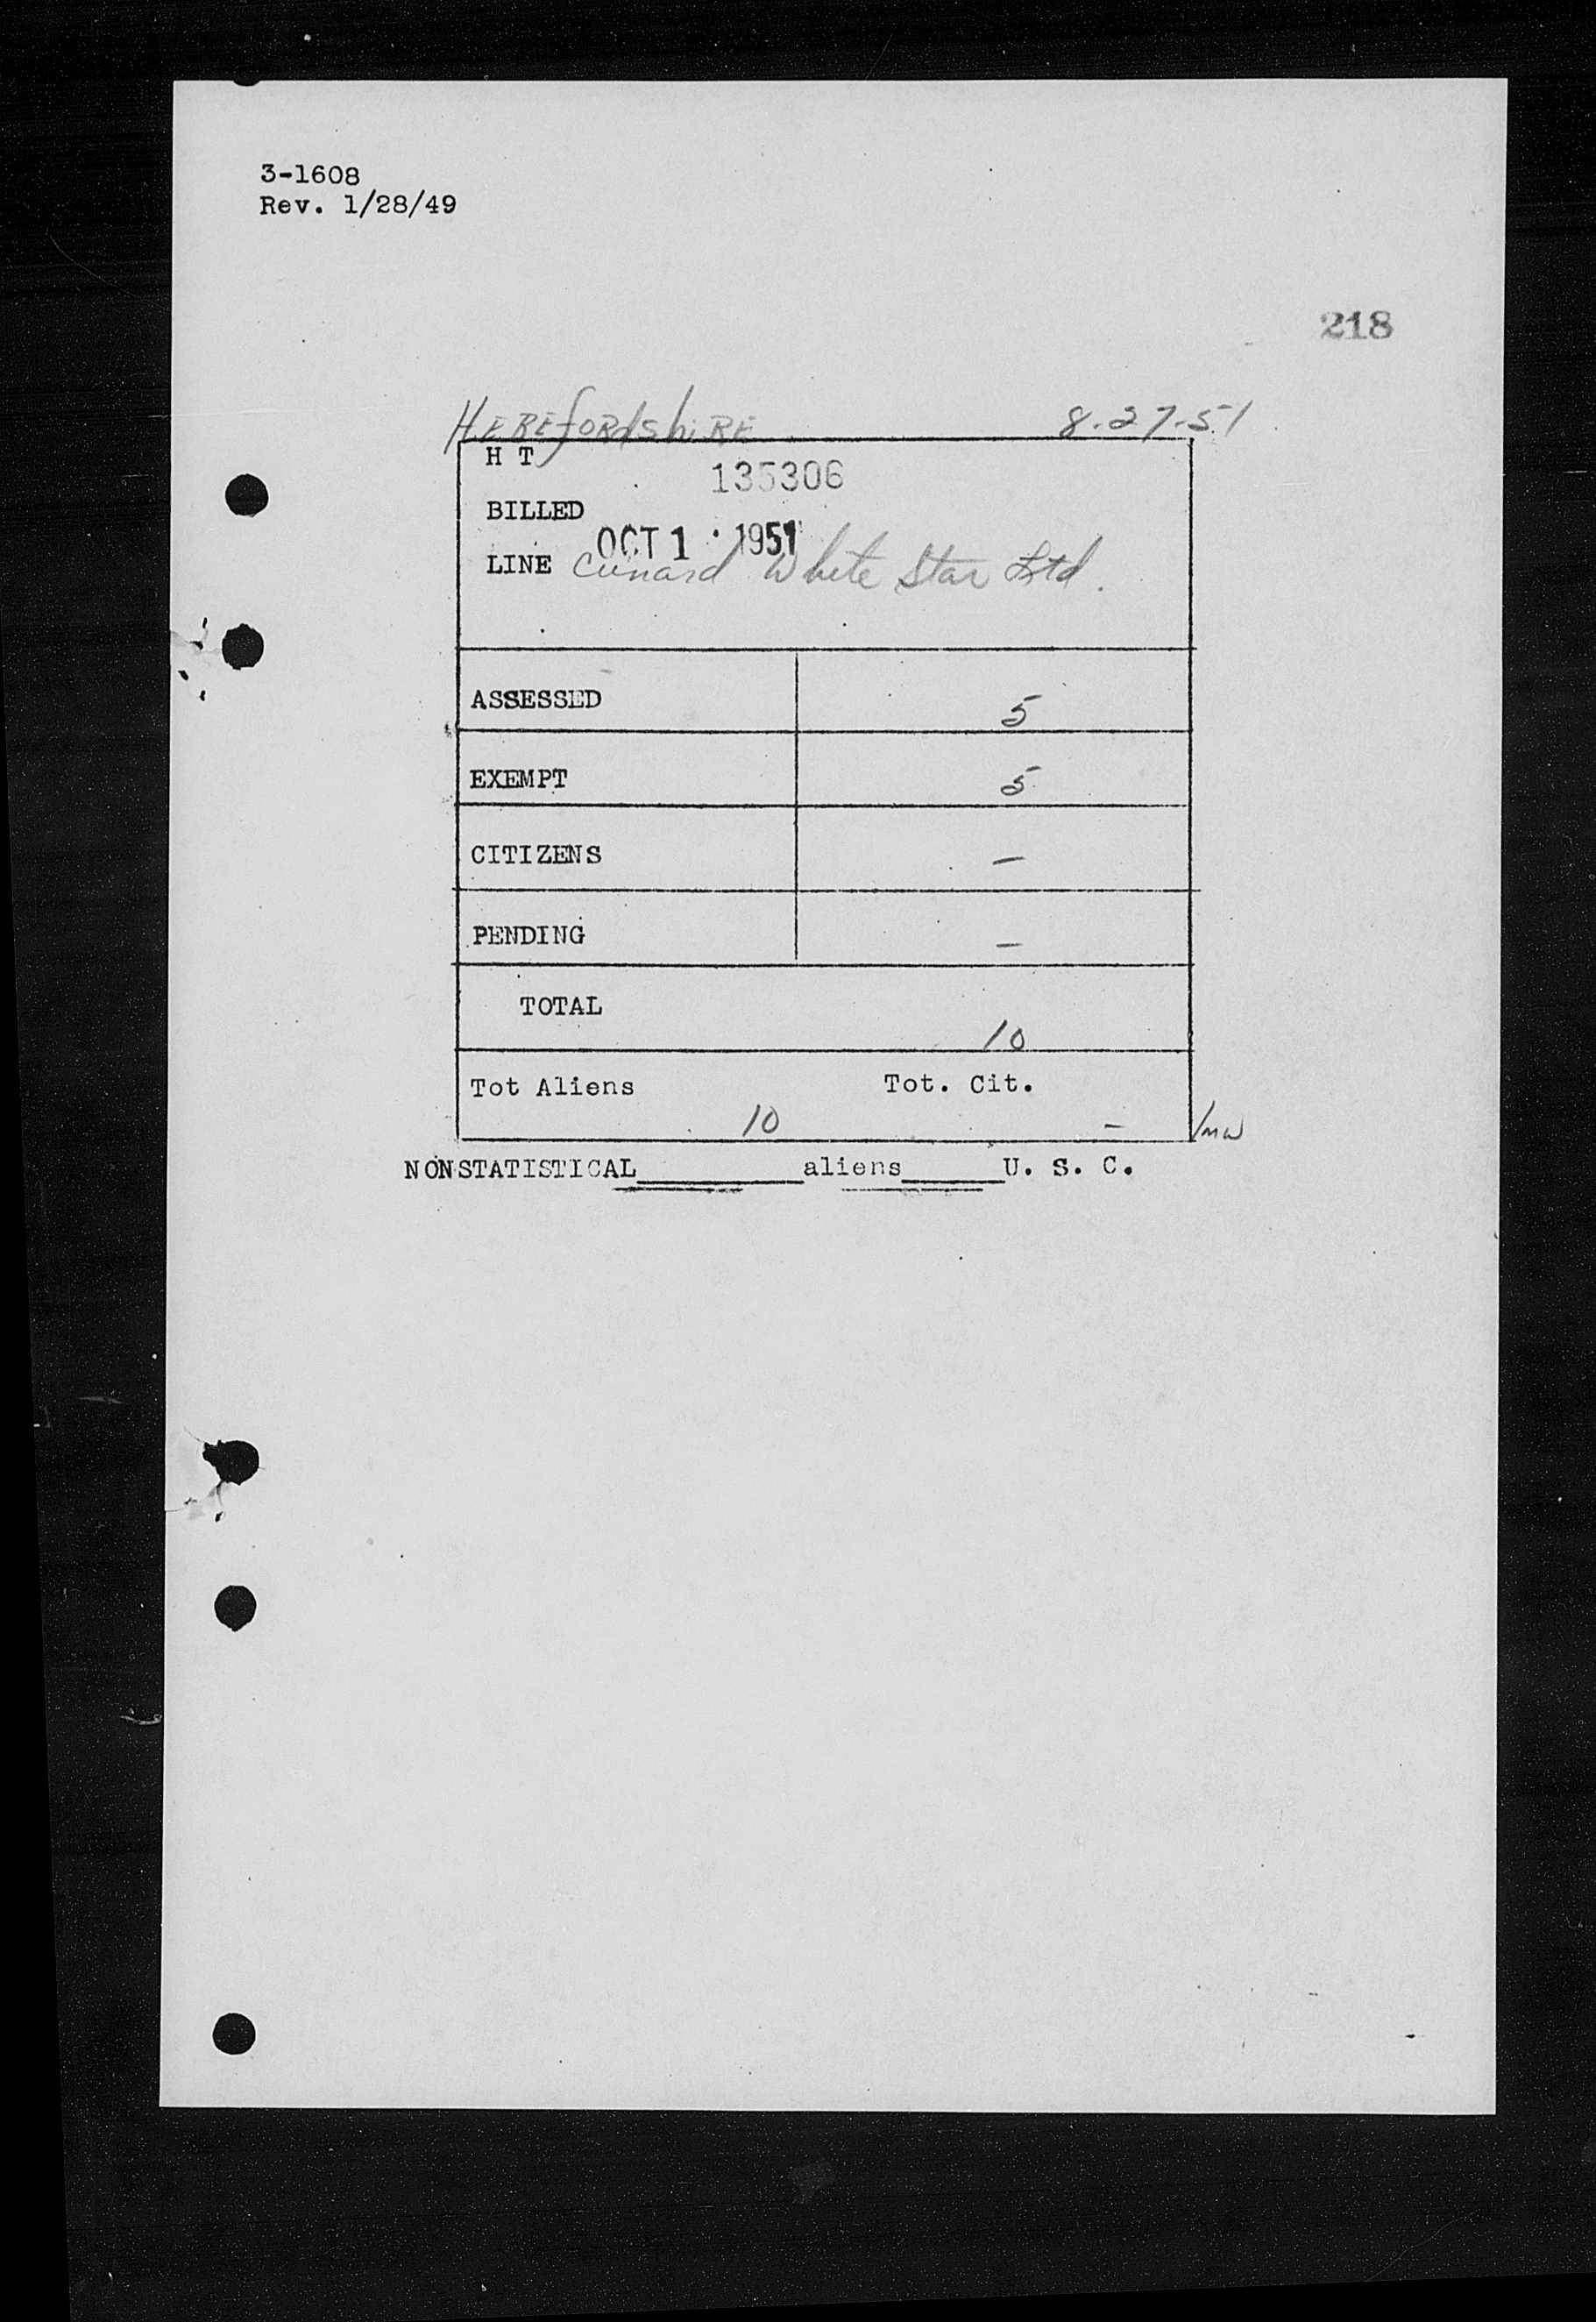 3-1608
Rev. 1/28/49
218
HEREfORdshiRE 8.27.51
H T 135306
BILLED
OCT 1 · 1951
LINE Cunard White Star Ltd.
ASSESSED 5
EXEMPT 5
CITIZENS –
PENDING –
TOTAL
10
Tot Aliens Tot. Cit.
10 – /mw
NONSTATISTICAL________aliens_____U. S. C.